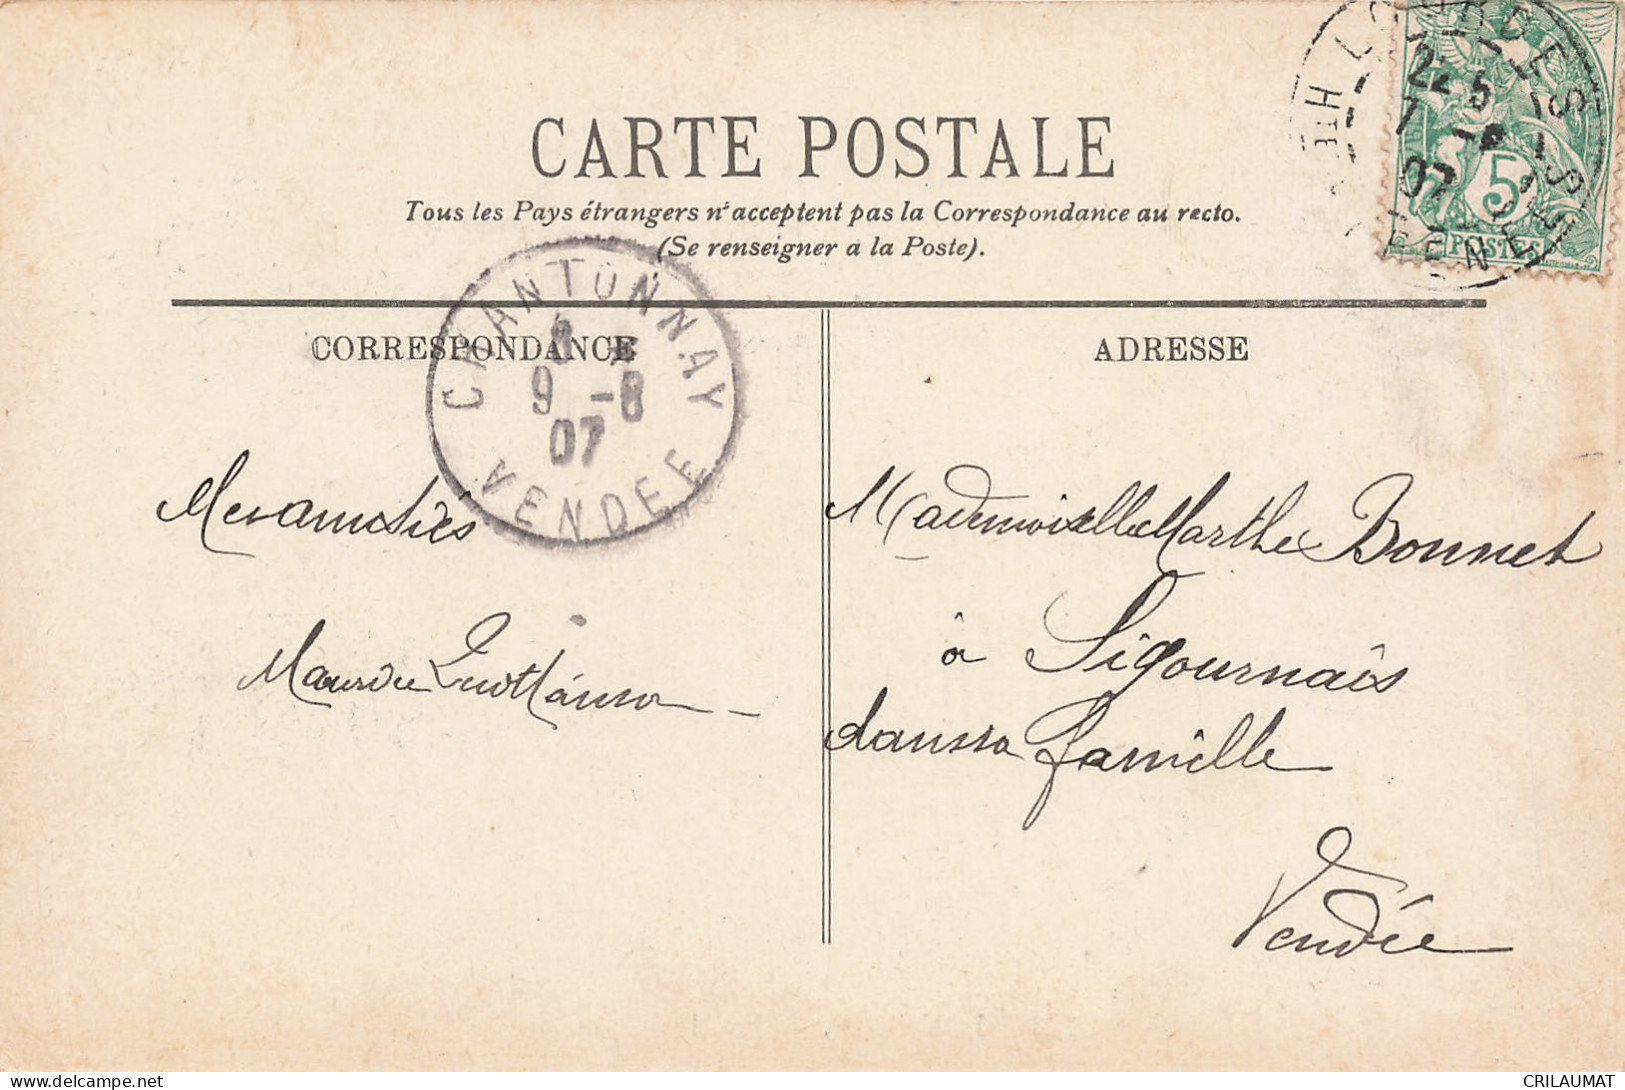 CARTE POSTALE
Tous les Pays étrangers n'acceptent pas la Correspondance au recto.
(Se renseigner a la Poste).
LOURDES
22 5
7 -8
07
5
POSTES
CHANTONNAY
8
9 -8
07
VENDEE
CORRESPONDANCE
ADRESSE
Mes amitiés
Maurice
Mademoiselle Marthe Bonnet
à Sigournais
dans sa famille
Vendée
CRILAUMAT